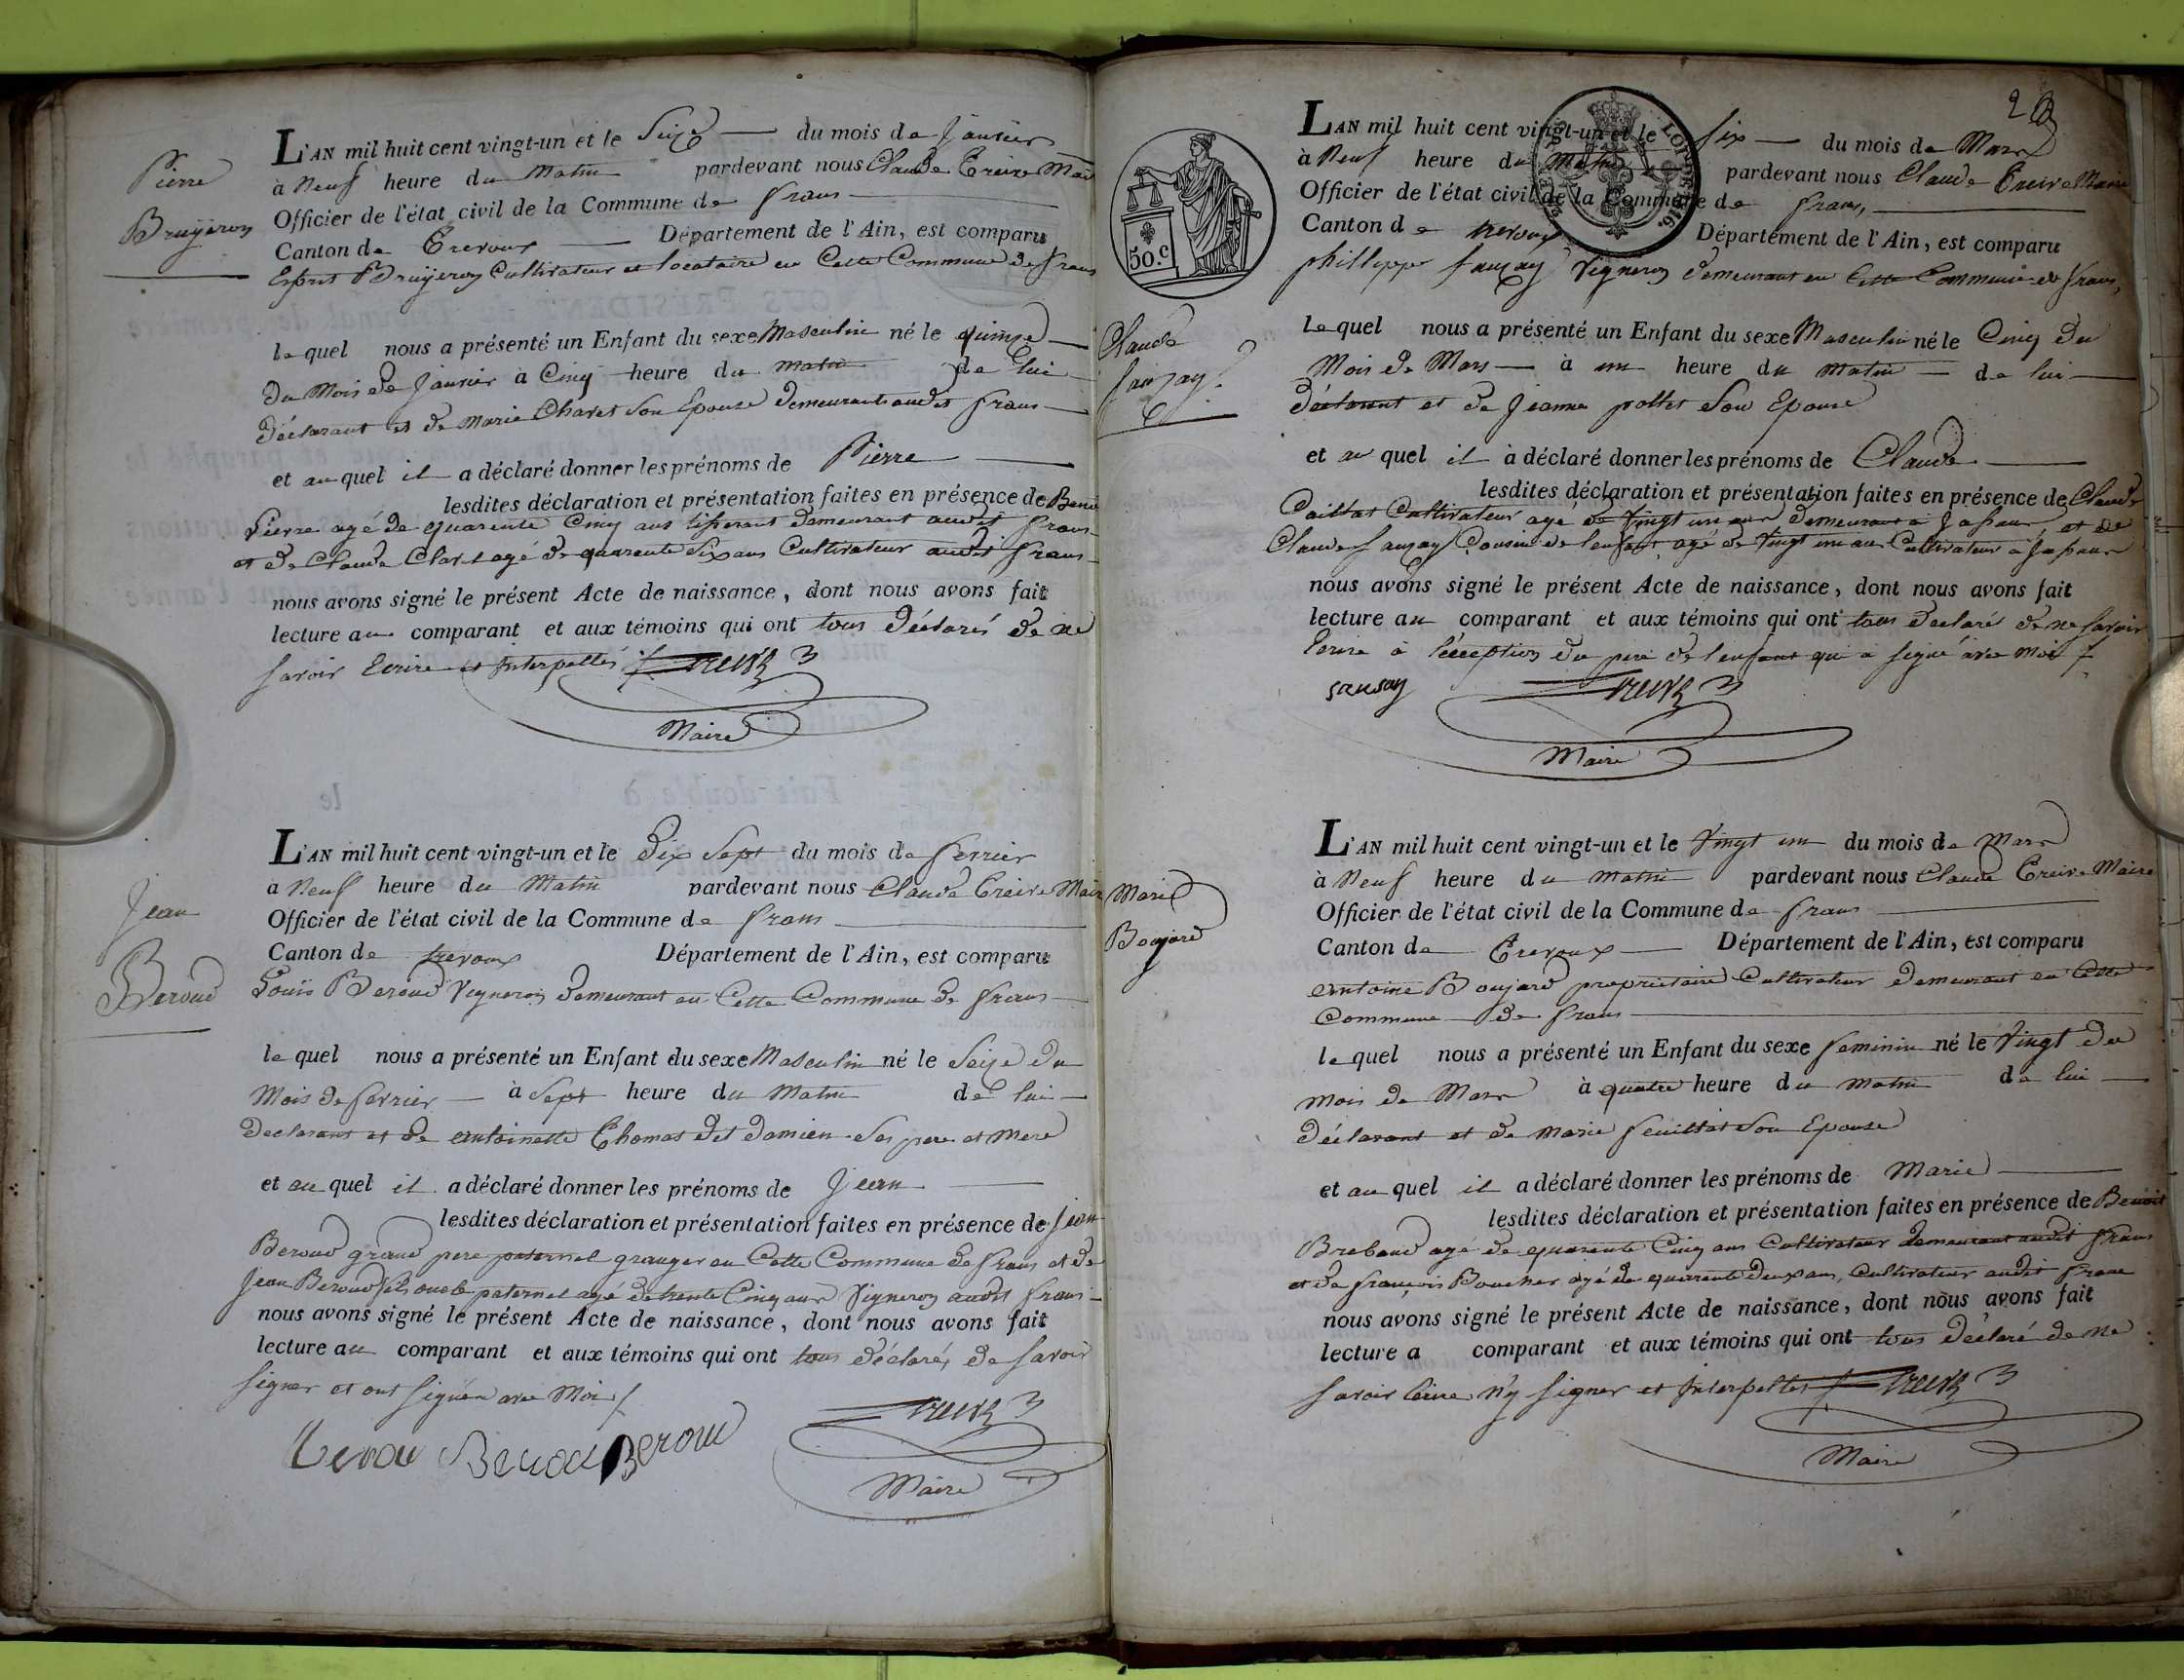 Pierre
Bruyeron
L'AN mil huit cent vingt-un et le Seize du mois de Janvier
à Neuf heure du Matin pardevant nous Claude Treive Mair
Officier de l'état civil de la Commune de frans
Canton de Trevoux Département de l'Ain, est comparu
Esprit Bruyeron Cultivateur et locataire en Cette Commune de frans
lequel nous a présenté un Enfant du sexe Masculin né le quinze
du Mois de Janvier à Cinq heure du matin de lui
déclarant et de Marie Charet Son Epouse demeurant audit frans
et auquel il a déclaré donner les prénoms de Pierre
lesdites déclaration et présentation faites en présence de
Pierre agé de quarente Cinq ans tisserant demeurant audit frans
et de Claude agé de quarente Six ans Cultivateur audit frans
nous avons signé le présent Acte de naissance, dont nous avons fait
lecture au comparant et aux témoins qui ont tous déclarés de ne
savoir Ecrire et Interpellés Treive
Maire
Jean
Beroud
L'AN mil huit cent vingt-un et le Dix Sept du mois de fevrier
à Neuf heure du Matin pardevant nous Claude Treive Mair
Officier de l'état civil de la Commune de frans
Canton de trevoux Département de l'Ain, est comparu
Louis Beroud Vigneron demeurant en Cette Commune de frans
lequel nous a présenté un Enfant du sexe Masculin né le Seize du
Mois de fevrier à Sept heure du Matin de lui
declarant et de antoinette Thomas dit damien Ses pere et Mere
et auquel il a déclaré donner les prénoms de Jean
lesdites déclaration et présentation faites en présence de Jean
Beroud grand pere paternel granger en Cette Commune de frans et de
Jean Beroud fils oncle paternel agé de trente Cinq ans Vigneron audit frans
nous avons signé le présent Acte de naissance, dont nous avons fait
lecture au comparant et aux témoins qui ont tous déclarés de savoir
signer et ont signés avec Moi
Beroud Beroud Treive
Maire
28
50.c
Claude
sauzay
L'AN mil huit cent vingt-un et le Six du mois de Mars
à Neuf heure du Matin pardevant nous Claude Treive Maire
Officier de l'état civil de la Commune de frans,
Canton de trevoux Département de l'Ain, est comparu
phillippe sauzay Vigneron demeurant en Cette Commune de frans,
lequel nous a présenté un Enfant du sexe Masculin né le Cinq du
Mois de Mars à un heure du matin de lui
déclarant et de Jeanne pollet Son Epouse
et au quel il a déclaré donner les prénoms de Claude
lesdites déclaration et présentation faites en présence de Claude
Cultivateur agé de Vingt un ans demeurant a et de
Claude sauzay Cousin de l'enfant, agé de Vingt un ans Cultivateur a
nous avons signé le présent Acte de naissance, dont nous avons fait
lecture au comparant et aux témoins qui ont tous declarés de ne savoir
Ecrire à l'éception du pere de l'enfant qui a signé avec Moi
sausay Treive
Maire
Marie
Boujard
L'AN mil huit cent vingt-un et le Vingt un du mois de Mars
à Neuf heure du matin pardevant nous Claude Treive Maire
Officier de l'état civil de la Commune de frans
Canton de Trevoux Département de l'Ain, est comparu
antoine Boujard proprietaire Cultivateur demeurant en Cette
Commune de frans
lequel nous a présenté un Enfant du sexe feminin né le Vingt du
mois de Mars à quatre heure du matin de lui
déclarant et de Marie feuillet Son Epouse
et au quel il a déclaré donner les prénoms de Marie
lesdites déclaration et présentation faites en présence de Benoit
Brebaud agé de quarente Cinq ans Cultivateur demeurant audit frans
et de françois Boucher agé de quarente deux ans, Cultivateur audit frans
nous avons signé le présent Acte de naissance, dont nous avons fait
lecture a comparant et aux témoins qui ont tous déclaré de ne
savoir Ecrire n'y signer et Interpellés Treive
Maire